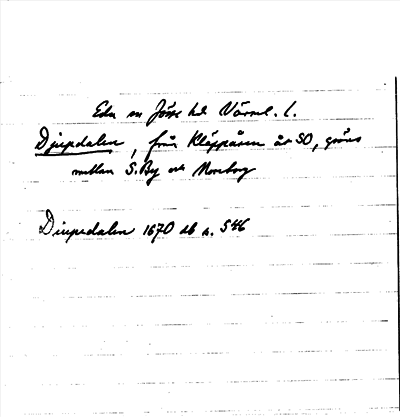 Eda sn Jösse hd Värml. l.
Djupdalen, från Kläppåsen åt SO, gräns
mellan S. By och Noreborg
Diupedalen 1670 db a. 546